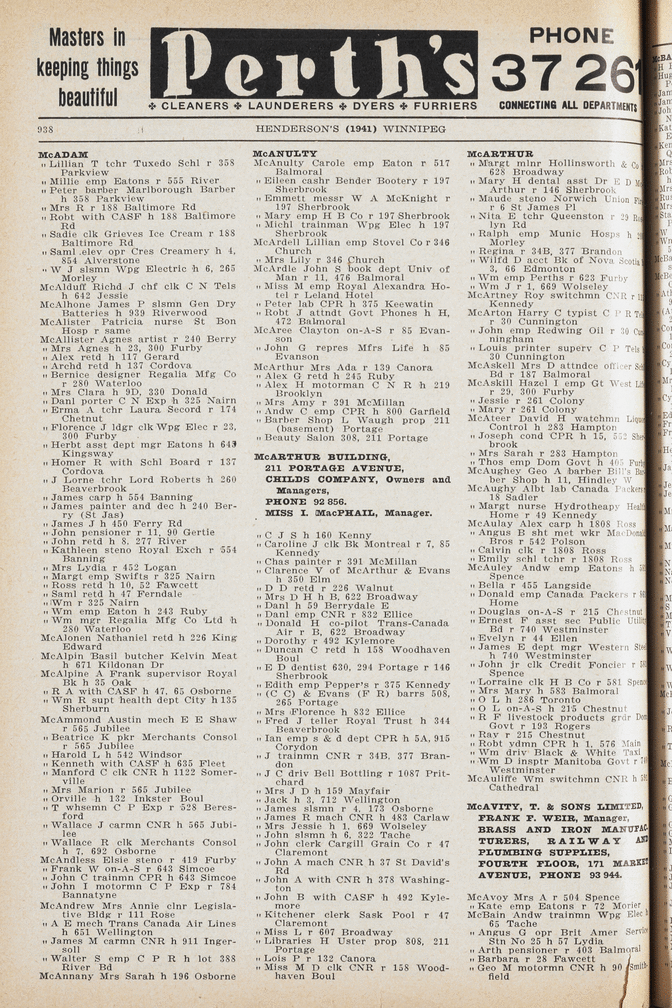 Masters in
keeping things
beautiful
Perth's
CLEANERS LAUNDERERS DYERS FURRIERS
PHONE
37 261
CONNECTING ALL DEPARTMENTS
938
HENDERSON'S (1941) WINNIPEG
McADAM
" Lillian T tchr Tuxedo Schl r 358
Parkview
" Millie emp Eatons r 555 River
" Peter barber Marlborough Barber
h 358 Parkview
" Mrs R r 188 Baltimore Rd
" Robt with CASF h 188 Baltimore
Rd
" Sadie clk Grieves Ice Cream r 188
Baltimore Rd
" Saml elev opr Cres Creamery h 4,
854 Alverstone
" W J slsmn Wpg Electric h 6, 265
Morley
McAlduff Richd J chf clk C N Tels
h 642 Jessie
McAlhone James P slsmn Gen Dry
Batteries h 939 Riverwood
McAlister Patricia nurse St Bon
Hosp r same
McAllister Agnes artist r 240 Berry
" Mrs Agnes h 23, 300 Furby
" Alex retd h 117 Gerard
" Archd retd h 137 Cordova
" Bernice designer Regalia Mfg Co
r 280 Waterloo
" Mrs Clara h 9D, 330 Donald
" Danl porter C N Exp h 325 Nairn
" Erma A tchr Laura Secord r 174
Chetnut
" Florence J ldgr clk Wpg Elec r 23,
300 Furby
" Herbt asst dept mgr Eatons h 643
Kingsway
" Homer R with Schl Board r 137
Cordova
" J Lorne tchr Lord Roberts h 260
Beaverbrook
" James carp h 554 Banning
" James painter and dec h 240 Ber-
ry (St Jas)
" James J h 450 Ferry Rd
" John pensioner r 11, 90 Gertie
" John retd h 8, 277 River
" Kathleen steno Royal Exch r 554
Banning
" Mrs Lydia r 452 Logan
" Margt emp Swifts r 325 Nairn
" Ross retd h 10, 52 Fawcett
" Saml retd h 47 Ferndale
" Wm r 325 Nairn
" Wm emp Eaton h 243 Ruby
" Wm mgr Regalia Mfg Co Ltd h
280 Waterloo
McAlonen Nathaniel retd h 226 King
Edward
McAlpin Basil butcher Kelvin Meat
h 671 Kildonan Dr
McAlpine A Frank supervisor Royal
Bk h 35 Oak
" R A with CASF h 47, 65 Osborne
" Wm R supt health dept City h 135
Sherburn
McAmmond Austin mech E E Shaw
r 565 Jubilee
" Beatrice K pkr Merchants Consol
r 565 Jubilee
" Harold L h 542 Windsor
" Kenneth with CASF h 635 Fleet
" Manford C clk CNR h 1122 Somer-
ville
" Mrs Marion r 565 Jubilee
" Orville h 132 Inkster Boul
" T whsemn C P Exp r 528 Beres-
ford
" Wallace J carmn CNR h 565 Jubi-
lee
" Wallace R clk Merchants Consol
h 7, 692 Osborne
McAndless Elsie steno r 419 Furby
" Frank W on-A-S r 643 Simcoe
" John C trainmn CPR h 643 Simcoe
" John I motormn C P Exp r 784
Bannatyne
McAndrew Mrs Annie clnr Legisla-
tive Bldg r 111 Rose
" A E mech Trans Canada Air Lines
h 651 Wellington
" James M carmn CNR h 911 Inger-
soll
" Walter S emp C P R h lot 388
River Bd
McAnnany Mrs Sarah h 196 Osborne
McANULTY
McAnulty Carole emp Eaton r 517
Balmoral
" Eileen cashr Bender Bootery r 197
Sherbrook
" Emmett messr W A McKnight r
197 Sherbrook
" Mary emp H B Co r 197 Sherbrook
" Michl trainman Wpg Elec h 197
Sherbrook
McArdell Lillian emp Stovel Co r 346
Church
" Mrs Lily r 346 Church
McArdle John S book dept Univ of
Man r 11, 476 Balmoral
" Miss M emp Royal Alexandra Ho-
tel r Leland Hotel
" Peter lab CPR h 375 Keewatin
" Robt J attndt Govt Phones h H,
472 Balmoral
McAree Clayton on-A-S r 85 Evan-
son
" John G repres Mfrs Life h 85
Evanson
McArthur Mrs Ada r 139 Canora
" Alex G retd h 245 Ruby
" Alex H motorman C N R h 219
Brooklyn
" Mrs Amy r 391 McMillan
" Andw C emp CPR h 800 Garfield
" Barber Shop L Waugh prop 211
(basement) Portage
" Beauty Salon 308, 211 Portage
McARTHUR BUILDING,
211 PORTAGE AVENUE,
CHILDS COMPANY, Owners and
Managers,
PHONE 92 856.
MISS I. MacPHAIL, Manager.
" C J S h 160 Kenny
" Caroline J clk Bk Montreal r 7, 85
Kennedy
" Chas painter r 391 McMillan
" Clarence V of McArthur & Evans
h 350 Elm
" D D retd r 226 Walnut
" Mrs D H h B, 622 Broadway
" Danl h 59 Berrydale E
" Danl emp CNR r 832 Ellice
" Donald H co-pilot Trans-Canada
Air r B, 622 Broadway
" Dorothy r 492 Kylemore
" Duncan C retd h 158 Woodhaven
Boul
" E D dentist 630, 294 Portage r 146
Sherbrook
" Edith emp Pepper's r 375 Kennedy
" (C C) & Evans (F R) barrs 508,
265 Portage
" Mrs Florence h 832 Ellice
" Fred J teller Royal Trust h 344
Beaverbrook
" Ian emp s & d dept CPR h 5A, 915
Corydon
" J trainmn CNR r 34B, 377 Bran-
don
" J C driv Bell Bottling r 1087 Prit-
chard
" Mrs J D h 159 Mayfair
" Jack h 3, 712 Wellington
" James slsmn r 4, 173 Osborne
" James R mach CNR h 483 Carlaw
" Mrs Jessie h 1, 669 Wolseley
" John slsmn h 6, 322 Tache
" John clerk Cargill Grain Co r 47
Claremont
" John A mach CNR h 37 St David's
Rd
" John A with CNR h 378 Washing-
ton
" John B with CASF h 492 Kyle-
more
" Kitchener clerk Sask Pool r 47
Claremont
" Miss L r 607 Broadway
" Libraries H Uster prop 808, 211
Portage
" Lois P r 132 Canora
" Miss M D clk CNR r 158 Wood-
haven Boul
McARTHUR
" Margt mlnr Hollinsworth & Co
628 Broadway
" Mary H dental asst Dr E D Mc-
Arthur r 146 Sherbrook
" Maude steno Norwich Union
r 6 St James Pl
" Nita E tchr Queenston r 29
lyn Rd
" Ralph emp Munic Hosps h
Morley
" Regina r 34B, 377 Brandon
" Wilfd D acct Bk of Nova Scotia
3, 66 Edmonton
" Wm emp Perths r 623 Furby
" Wm J r 1, 669 Wolseley
McArtney Roy switchmn CNR r
Kennedy
McArton Harry C typist C P R
r 30 Cunnington
" John emp Redwing Oil r 30 Cun-
ningham
" Louis printer superv C P Tels
30 Cunnington
McAskell Mrs D attndee officer
Bd r 187 Balmoral
McAskill Hazel I emp Gt West Life
r 29, 300 Furby
" Jessie r 261 Colony
" Mary r 261 Colony
McAteer David H watchmn Liquor
Control h 283 Hampton
" Joseph cond CPR h 15, 552 Sher-
brook
" Mrs Sarah r 283 Hampton
" Thos emp Dom Govt h 405 Furby
McAughey Geo A barber Bill's Bar-
ber Shop h 11, Hindley W
McAughy Albt lab Canada Packers
18 Sadler
" Margt nurse Hydrotheapy Health
Home r 49 Kennedy
McAulay Alex carp h 1808 Ross
" Angus B sht met wkr MacDonald
Bros r 542 Polson
" Calvin clk r 1808 Ross
" Emily schl tchr r 1808 Ross
McAuley Andw emp Eatons h
Spence
" Bella r 455 Langside
" Donald emp Canada Packers
Home
" Douglas on-A-S r 215 Chestnut
" Ernest F asst sec Public Utility
Bd r 740 Westminster
" Evelyn r 44 Ellen
" James E dept mgr Western Steel
h 740 Westminster
" John jr clk Credit Foncier r
Spence
" Lorraine clk H B Co r 581 Spence
" Mrs Mary h 583 Balmoral
" O L h 286 Toronto
" O L on-A-S h 215 Chestnut
" R F livestock products grdr Dom
Govt r 193 Rogers
" Ray r 215 Chestnut
" Robt ydmn CPR h 1, 576 Main
" Wm driv Black & White Taxi
" Wm D insptr Manitoba Govt r
Westminster
McAuliffe Wm switchmn CNR h
Cathedral
McAVITY, T. & SONS LIMITED,
FRANK F. WEIR, Manager,
BRASS AND IRON MANUFAC-
TURERS, RAILWAY AND
PLUMBING SUPPLIES,
FOURTH FLOOR, 171 MARKET
AVENUE, PHONE 93 944.
McAvoy Mrs A r 504 Spence
" Kate emp Eatons r 72 Morier
McBain Andw trainmn Wpg Elec h
65 Tache
" Angus G opr Brit Amer
Stn No 25 h 57 Lydia
" Arth pensioner r 403 Balmoral
" Barbara r 28 Fawcett
" Geo M motormn CNR h 90 Smith-
field